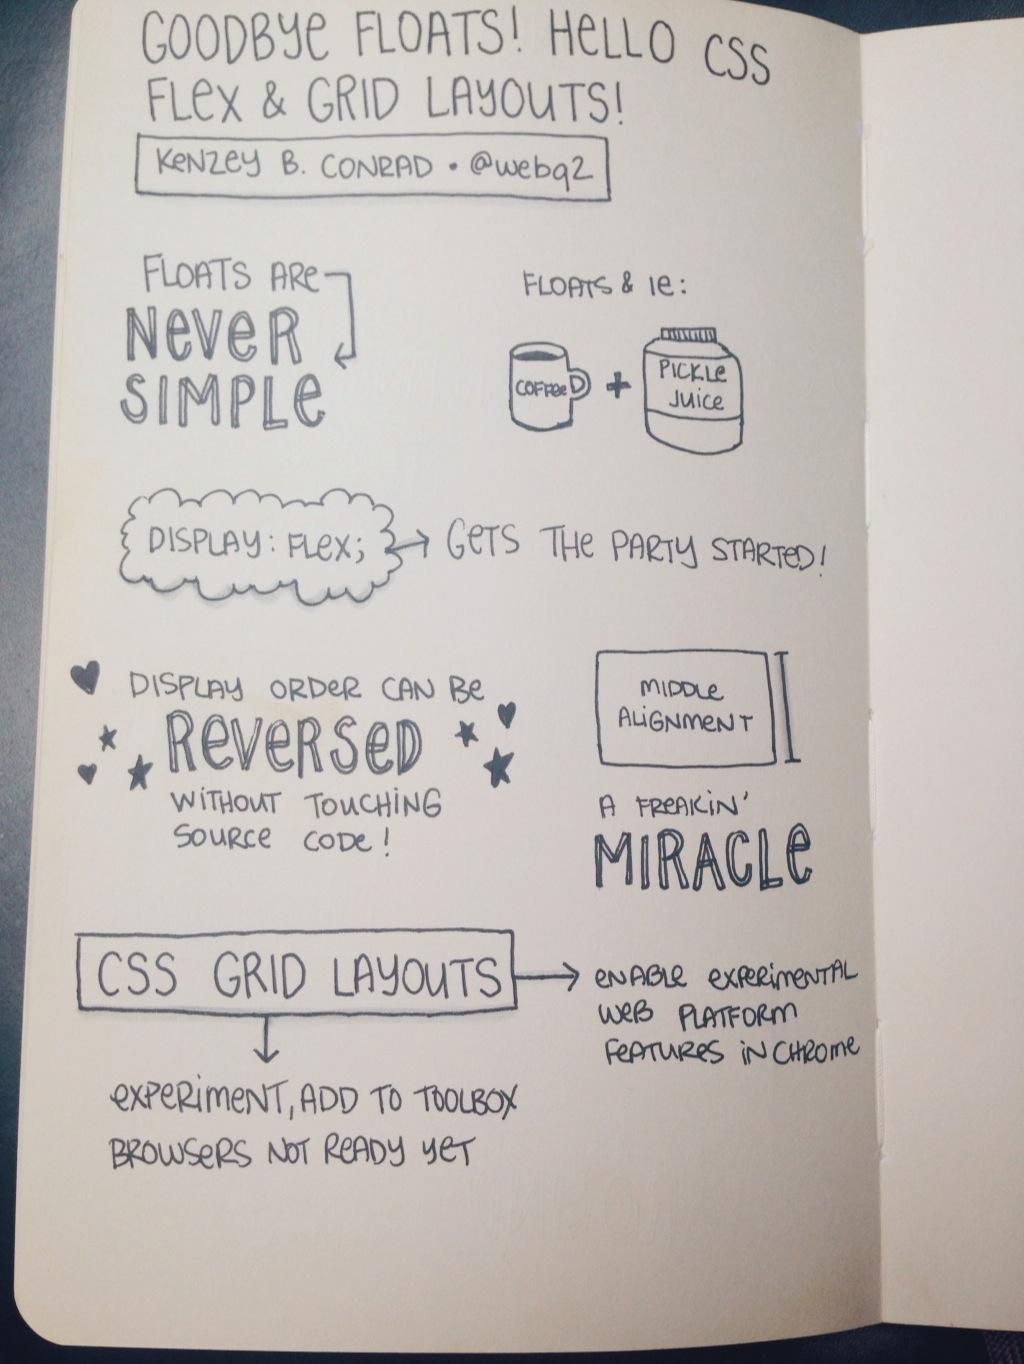 GOODBYe FLOATS! HeLLO CSS
FLex & GRID LAYOUTS!
KeNZey B. CONRAD • @webq2
FLOATS ARe
NeVeR
SIMPLe
FLOATS & ie:
COFFee
+
PICKLe
Juice
DISPLAY: FLex;
GeTS THe PARTY STARTeD!
DISPLAY ORDER CAN Be
ReVeRSeD
WiTHOUT TOUCHiNG
SOURCe CODe!
MiDDLe
ALiGNMeNT
A FReAKiN'
MIRACLe
CSS GRID LAYOUTS
eNABLe exPeRiMeNTAL
WeB PLATFORM
FeATUReS iN CHROMe
exPeRiMeNT, ADD TO TOOLBOX
BROWSeRS NOT ReADY YeT